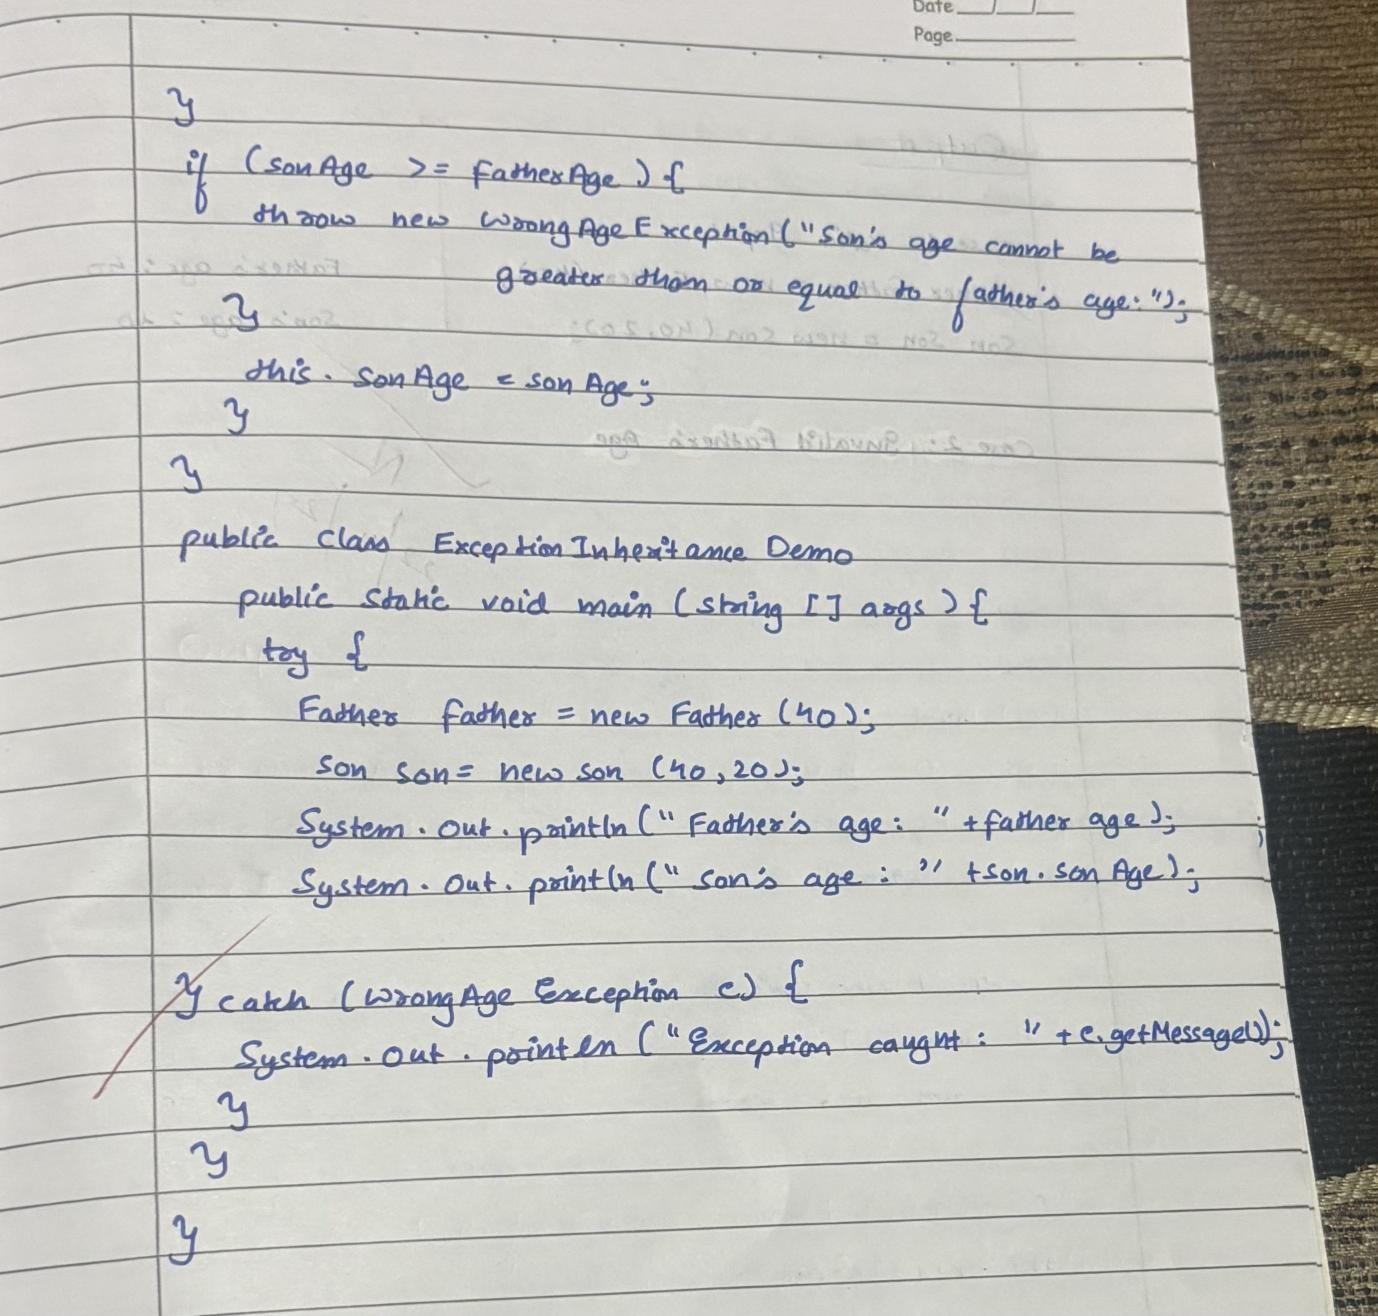 Date
Page
}
if (sonAge >= FatherAge) {
throw new WrongAgeException("Son's age cannot be
greater than or equal to father's age:");
}
this. sonAge = sonAge;
}
}
public class ExceptionInheritance Demo
public static void main (string [] args) {
try {
Father father = new Father (40);
Son son = new son (40, 20);
System.out.println(" Father's age: " + father age);
System.out.println(" son's age : " + son.son Age);
} catch (WrongAge Exception e) {
System.out.println ("Exception caught : " + e.getMessage());
}
}
}